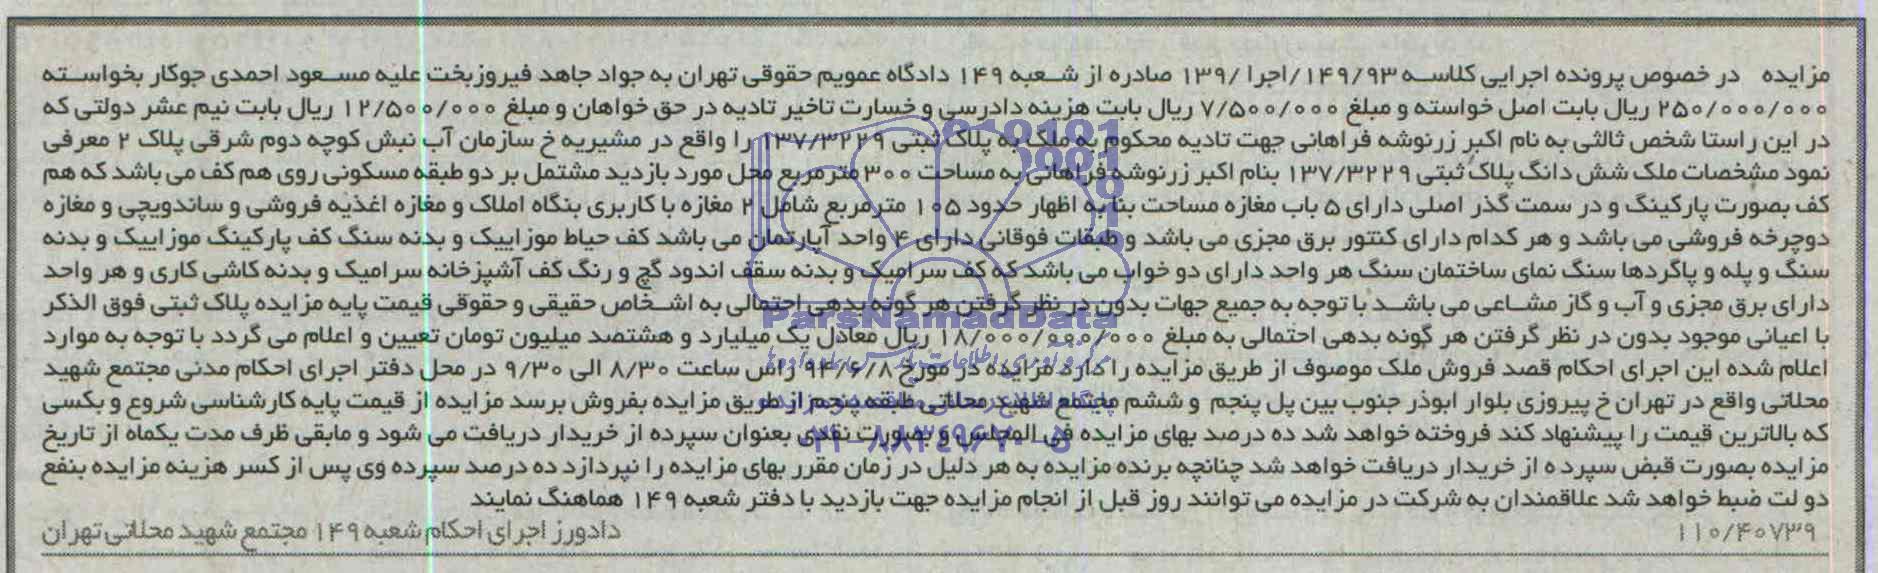 مزایده در خصوص پرونده اجرایی کلاسه ۱۴۹/۹۳/اجرا /۱۳۹ صادره از شعبه ۱۴۹ دادگاه عمویم حقوقی تهران به جواد جاهد فیروزبخت علیه مسعود احمدی جوکار بخواسته
۲۵۰/۰۰۰/۰۰۰ ریال بابت اصل خواسته و مبلغ ۷/۵۰۰/۰۰۰ ریال بابت هزینه دادرسی و خسارت تاخیر تادیه در حق خواهان و مبلغ ۱۲/۵۰۰/۰۰۰ ریال بابت نیم عشر دولتی که
در این راستا شخص ثالثی به نام اکبر زرنوشه فراهانی جهت تادیه محکوم به ملک به پلاک ثبتی ۱۳۷/۳۲۲۹ را واقع در مشیریه خ سازمان آب نبش کوچه دوم شرقی پلاک ۲ معرفی
نمود مشخصات ملک شش دانگ پلاک ثبتی ۱۳۷/۳۲۲۹ بنام اکبر زرنوشه فراهانی به مساحت ۳۰۰ مترمربع محل مورد بازدید مشتمل بر دو طبقه مسکونی روی هم کف می باشد که هم
کف بصورت پارکینگ و در سمت گذر اصلی دارای ۵ باب مغازه مساحت بنا به اظهار حدود ۱۰۵ مترمربع شامل ۲ مغازه با کاربری بنگاه املاک و مغازه اغذیه فروشی و ساندویچی و مغازه
دوچرخه فروشی می باشد و هر کدام دارای کنتور برق مجزی می باشد و طبقات فوقانی دارای ۴ واحد آپارتمان می باشد کف حیاط موزاییک و بدنه سنگ کف پارکینگ موزاییک و بدنه
سنگ و پله و پاگردها سنگ نمای ساختمان سنگ هر واحد دارای دو خواب می باشد که کف سرامیک و بدنه سقف اندود گچ و رنگ کف آشپزخانه سرامیک و بدنه کاشی کاری و هر واحد
دارای برق مجزی و آب و گاز مشاعی می باشد با توجه به جمیع جهات بدون در نظر گرفتن هر گونه بدهی احتمالی به اشخاص حقیقی و حقوقی قیمت پایه مزایده پلاک ثبتی فوق الذکر
با اعیانی موجود بدون در نظر گرفتن هر گونه بدهی احتمالی به مبلغ ۱۸/۰۰۰/۰۰۰/۰۰۰ ریال معادل یک میلیارد و هشتصد میلیون تومان تعیین و اعلام می گردد با توجه به موارد
اعلام شده این اجرای احکام قصد فروش ملک موصوف از طریق مزایده را دارد مزایده در مورخ ۹۴/۶/۸ راس ساعت ۸/۳۰ الی ۹/۳۰ در محل دفتر اجرای احکام مدنی مجتمع شهید
محلاتی واقع در تهران خ پیروزی بلوار ابوذر جنوب بین پل پنجم و ششم مجتمع شهید محلاتی طبقه پنجم از طریق مزایده بفروش برسد مزایده از قیمت پایه کارشناسی شروع و بکسی
که بالاترین قیمت را پیشنهاد کند فروخته خواهد شد ده درصد بهای مزایده فی المجلس و بصورت نقدی بعنوان سپرده از خریدار دریافت می شود و مابقی ظرف مدت یکماه از تاریخ
مزایده بصورت قبض سپرده از خریدار دریافت خواهد شد چنانچه برنده مزایده به هر دلیل در زمان مقرر بهای مزایده را نپردازد ده درصد سپرده وی پس از کسر هزینه مزایده بنفع
دولت ضبط خواهد شد علاقمندان به شرکت در مزایده می توانند روز قبل از انجام مزایده جهت بازدید با دفتر شعبه ۱۴۹ هماهنگ نمایند
۱۱۰/۴۰۷۳۹ دادورز اجرای احکام شعبه ۱۴۹ مجتمع شهید محلاتی تهران
ParsNamadData